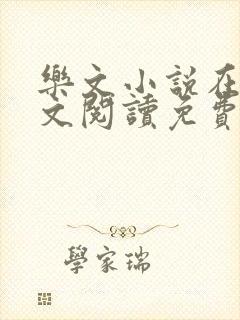 樂文小說在
文閱讀免費
學家瑞